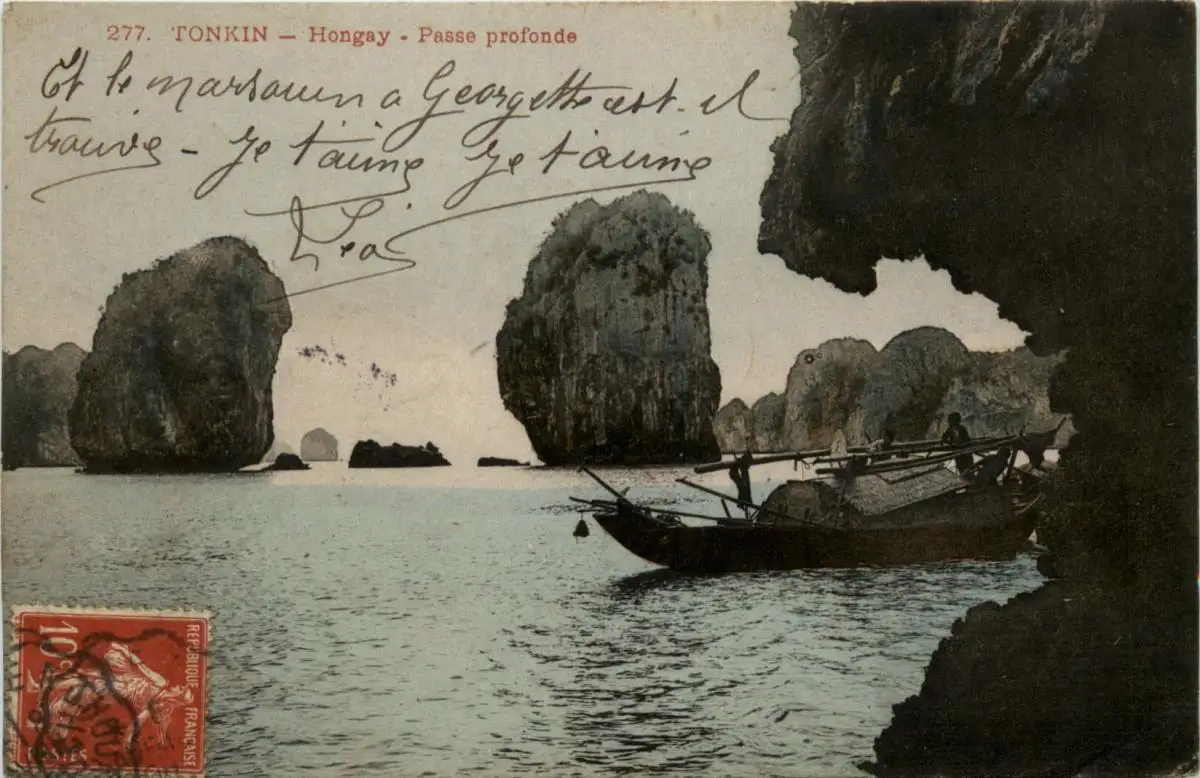 277. TONKIN — Hongay - Passe profonde
Et le marsouin a Georgette est-il
trouvé - Je t'aime Je t'aime
Léo
REPUBLIQUE FRANÇAISE
10c
POSTES